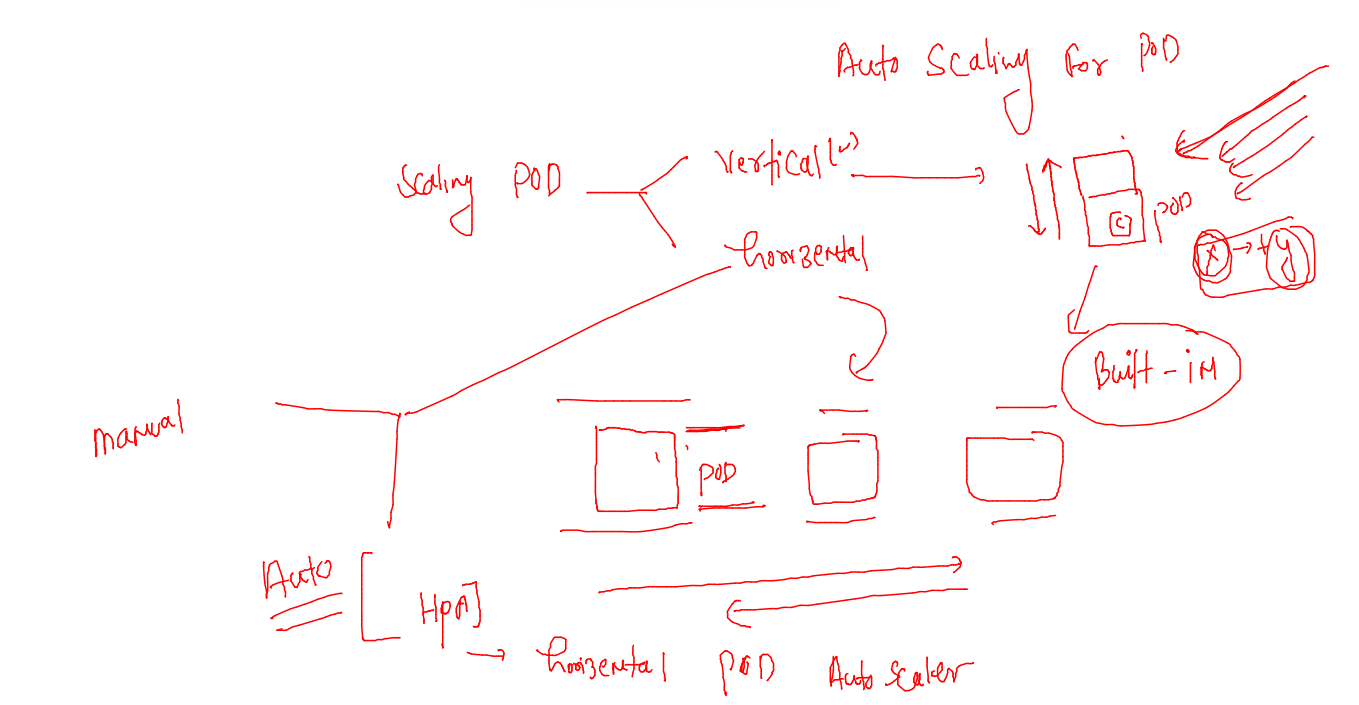 Auto Scaling for POD
Scaling POD
Vertical
horizental
C
POD
x → + y
Built-in
manual
POD
Auto [ HPA]
→ horizental POD Auto scaler